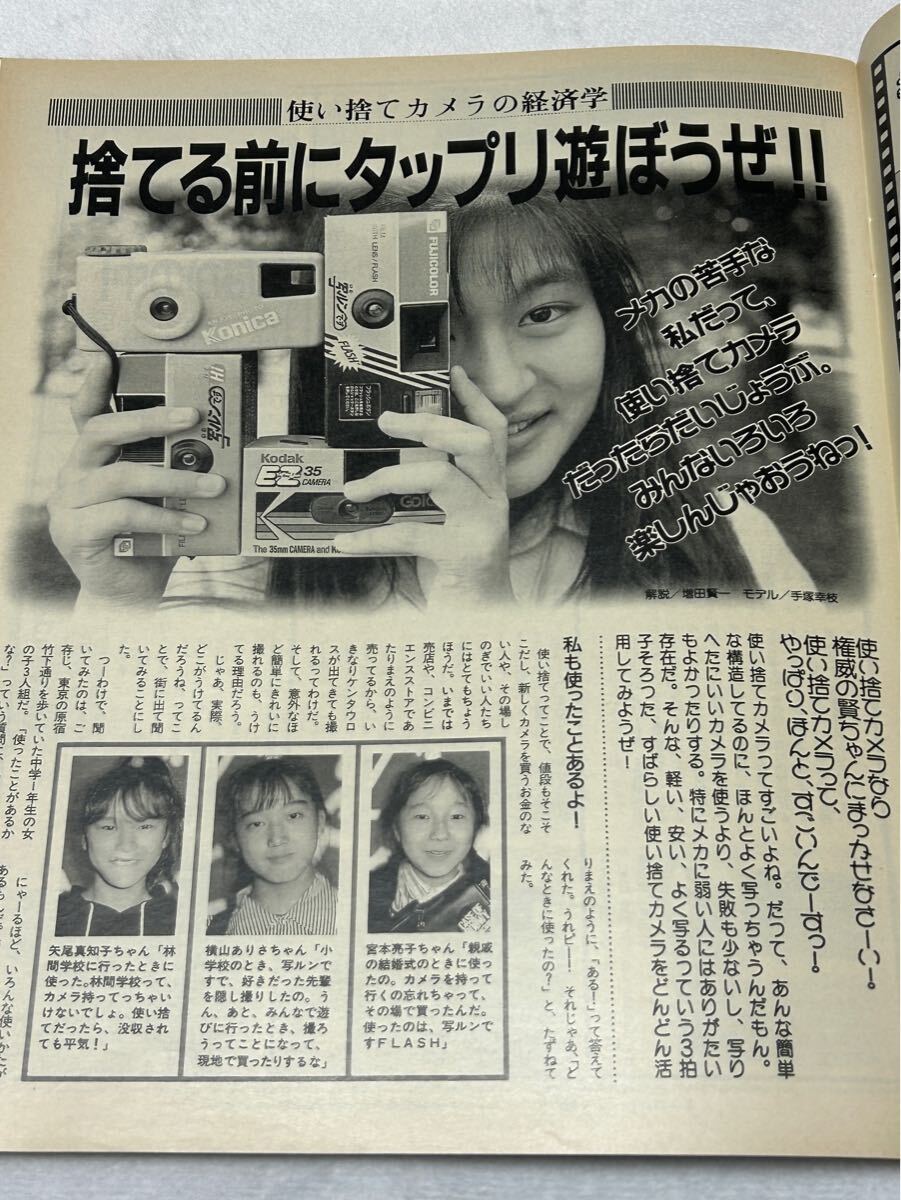 使い捨てカメラの経済学
捨てる前にタップリ遊ぼうぜ!!
メカの苦手な
私だって、
使い捨てカメラ
だったらだいじょうぶ。
みんないろいろ
楽しんじゃおうねっ!
Konica
FUJICOLOR
写ルンです
FLASH
写ルンです
Kodak
EZ 35
CAMERA
The 35mm CAMERA and
解説/増田賢一 モデル/手塚幸枝
使い捨てカメラなら
権威の賢ちゃんにまったせなさーい!
使い捨てカメラって、
やっぱり、ほんと、すごいんでーすっ!
使い捨てカメラってすごいよね。だって、あんな簡単
な構造してるのに、ほんとよく写っちゃうんだもん。
へたにいいカメラを使うより、失敗も少ないし、写り
もよかったりする。特にメカに弱い人にはありがたい
存在だ。そんな、軽い、安い、よく写るっていう3拍
子そろった、すばらしい使い捨てカメラをどんどん活
用してみようぜ!
私も使ったことあるよ!
使い捨てってことで、値段もそこそ
こだし、新しくカメラを買うお金のな
い人や、その場し
のぎでいい人たち
にはとてもちょう
ほうだ。いまでは
売店や、コンビニ
エンスストアであ
たりまえのように
売ってるから、い
きなりケンタウロ
スが出てきても撮
れるってわけだ。
そして、意外なほ
ど簡単にきれいに
撮れるのも、うけ
てる理由だろう。
じゃあ、実際、
どこがうけてるん
だろうね、ってこ
とで、街に出て聞
いてみることにし
た。
つーわけで、聞
いてみたのは、ご
存じ、東京の原宿
竹下通りを歩いていた中学1年生の女
の子3人組だ。「使ったことがあるか
な?」っていう質問に、
りまえのように、「ある!」って答えて
くれた。うれピー! それじゃあ、「ど
んなときに使ったの?」と、たずねて
みた。
宮本亮子ちゃん「親戚
の結婚式のときに使っ
たの。カメラを持って
行くの忘れちゃって、
その場で買ったんだ。
使ったのは、写ルンで
すFLASH」
横山ありさちゃん「小
学校のとき、写ルンで
すで、好きだった先輩
を隠し撮りしたの。う
ん、あと、みんなで遊
びに行ったとき、撮ろ
うってことになって、
現地で買ったりするな」
矢尾真知子ちゃん「林
間学校に行ったときに
使った。林間学校って、
カメラ持ってっちゃい
けないでしょ。使い捨
てだったら、没収され
ても平気!」
にゃーるほど、いろんな使いかたが